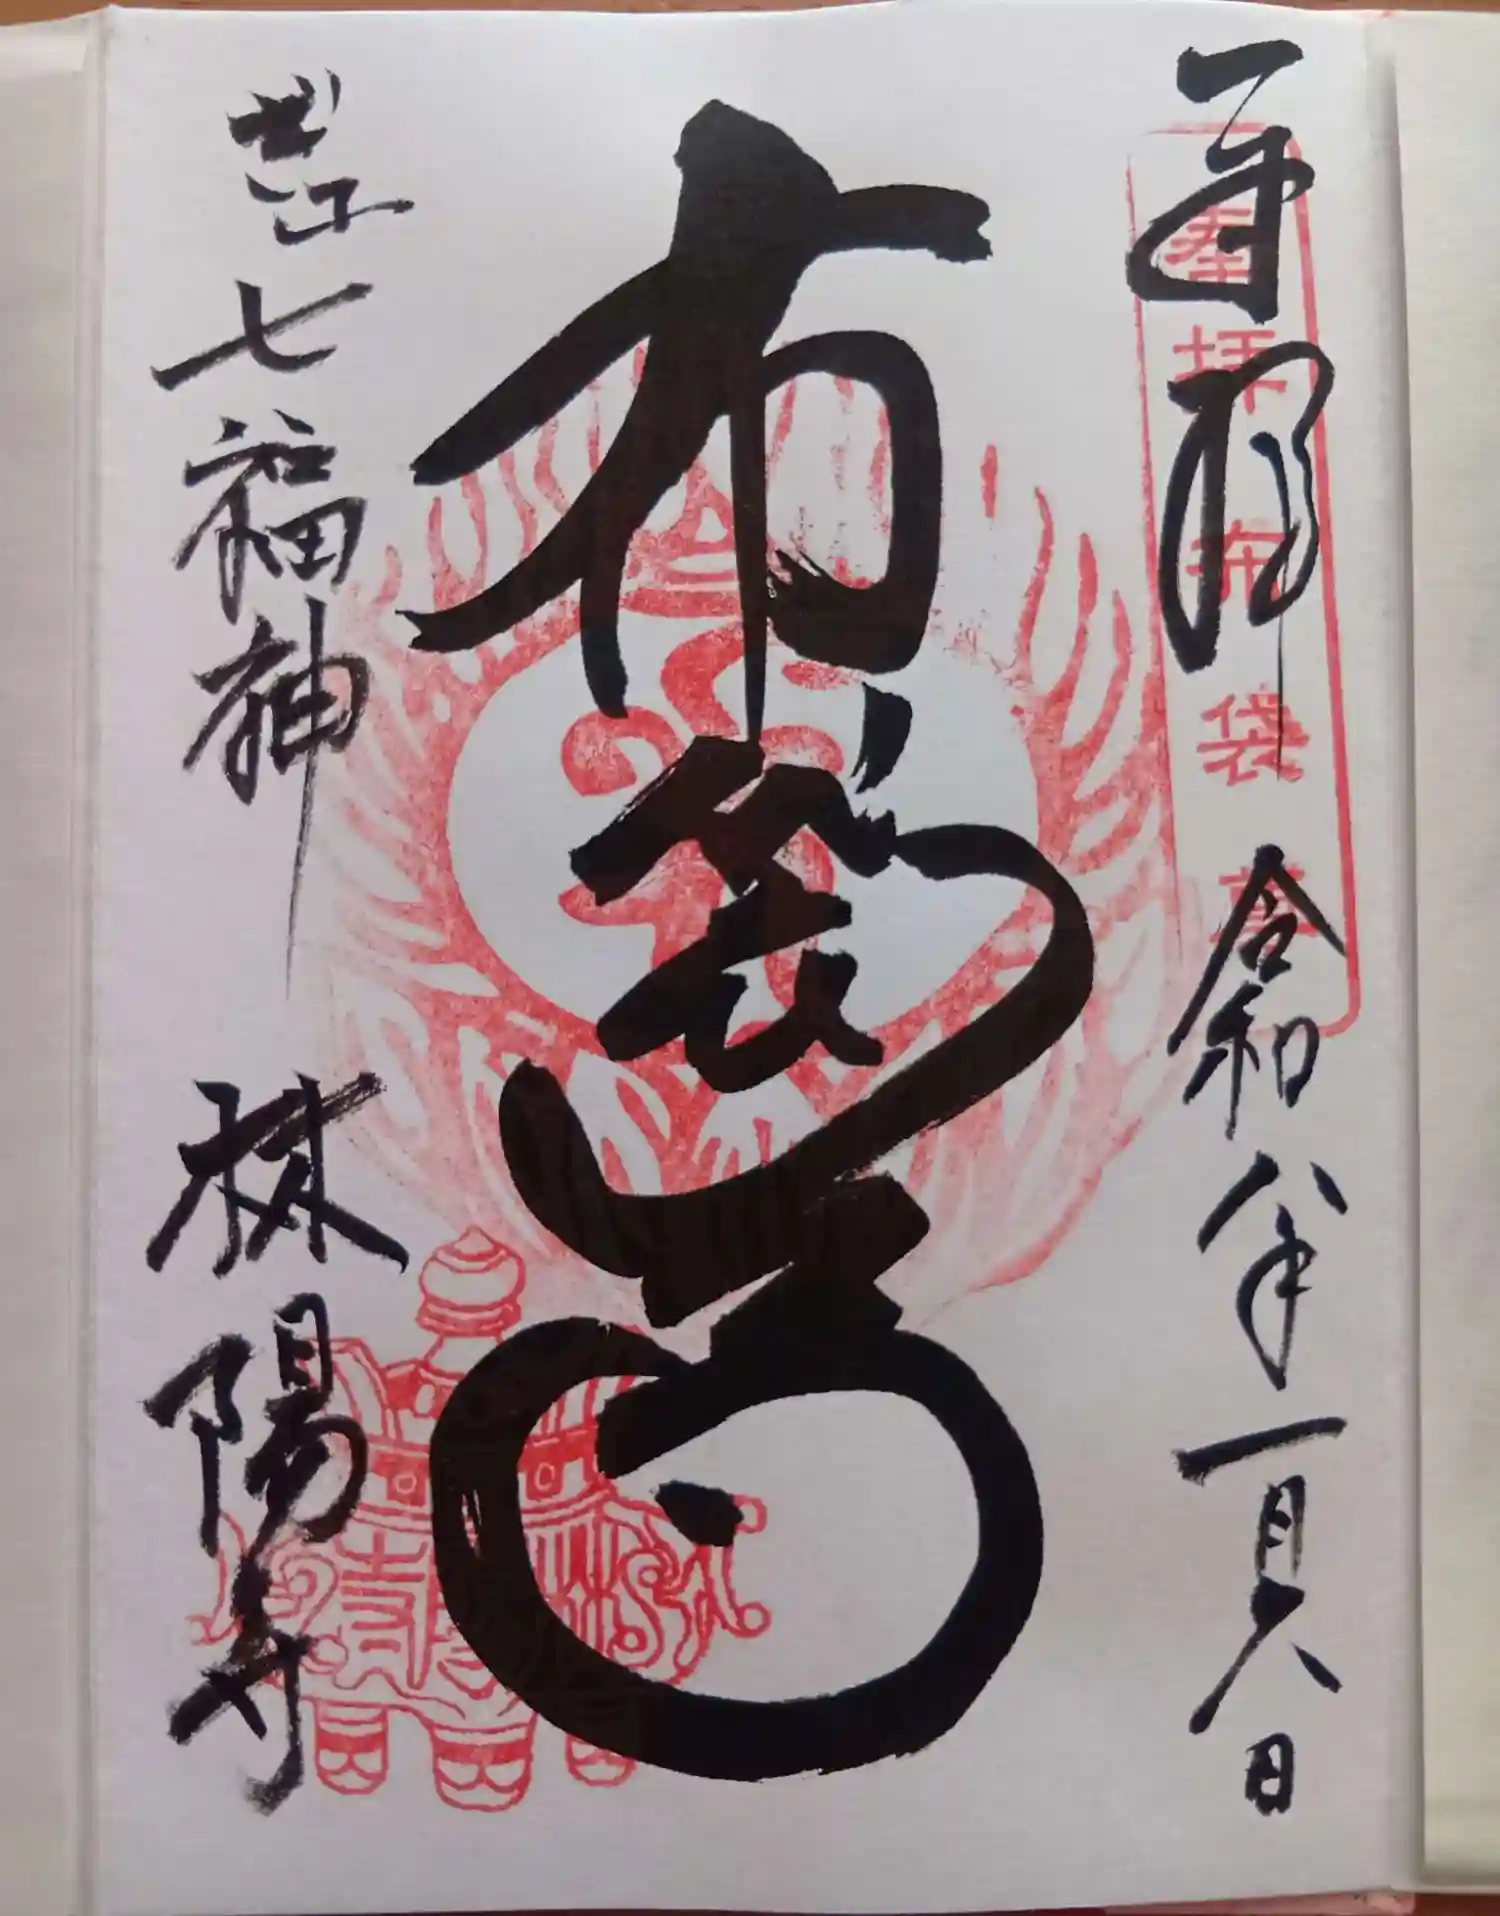 奉拝
令和八年一月六日
奉拝布袋尊
布袋尊
七福神
林陽寺